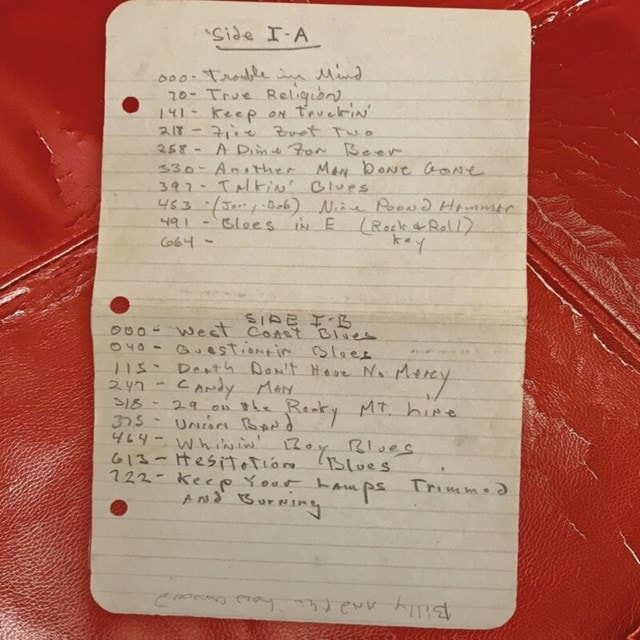 Side I-A
000- Trouble in Mind
70- True Religion
141- Keep on Truckin'
218- Five Foot Two
258- A Dime For Beer
330- Another Man Done Gone
397- Talkin' Blues
463-(Jon, Bob) Nine Pound Hammer
491- Blues in E (Rock & Roll)
664- key
SIDE I-B
000- West Coast Blues
040- Questionin Blues
115- Death Don't Have No Mercy
247- Candy Man
318- 29 on the Rocky Mt. Line
375- Union Band
464- Whinin' Boy Blues
613- Hesitation Blues
722- Keep Your Lamps Trimmed
And Burning
Billy and the